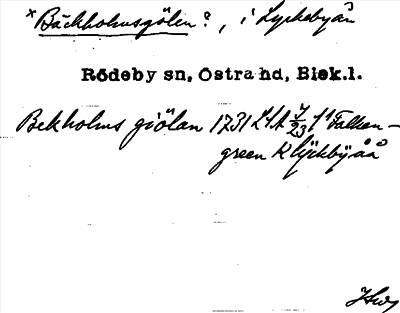 *Bäckholmsgölen?, i Lyckebyån
Rödeby sn, Östra hd, Blek.l.
Bekholms giölan 1731 LSA 7/23 f1 Falken-
green K lÿckbÿåå